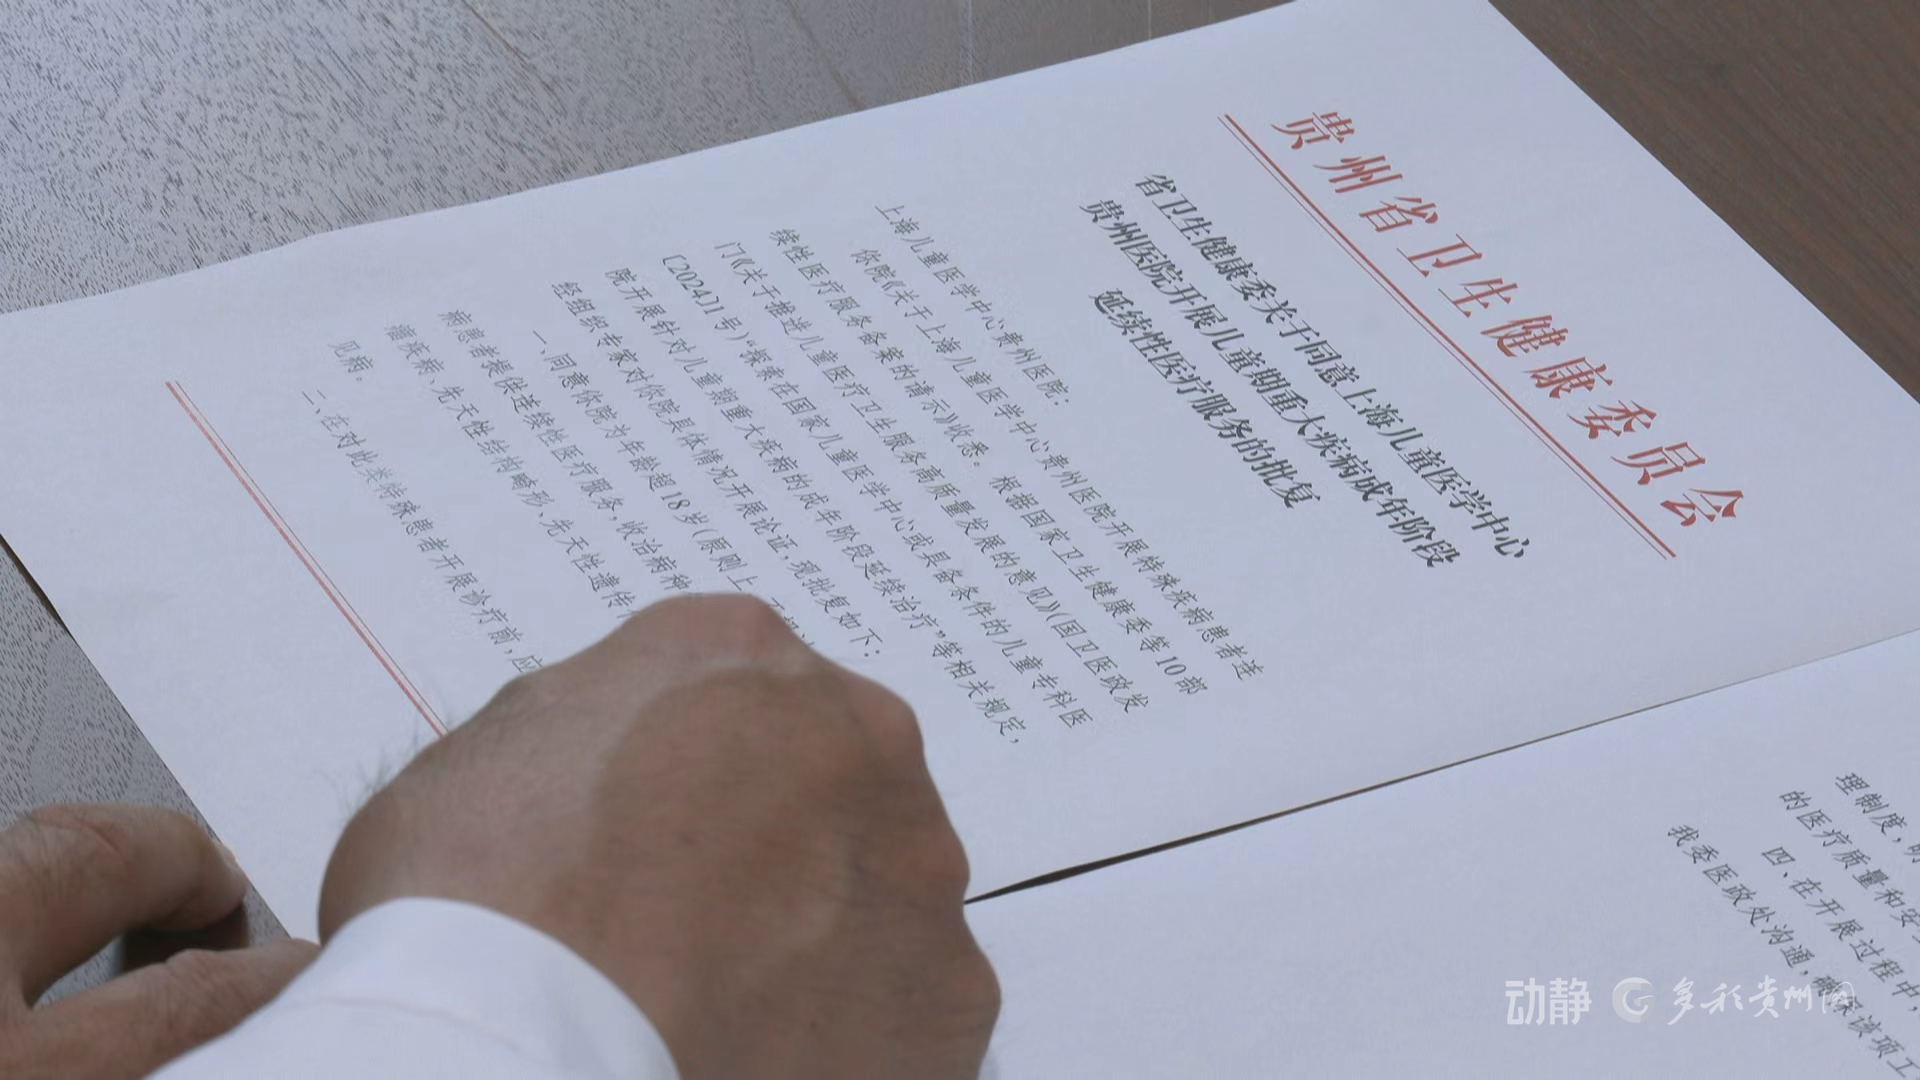 贵州省卫生健康委员会
省卫生健康委关于同意上海儿童医学中心
贵州医院开展儿童期重大疾病成年阶段
延续性医疗服务的批复
上海儿童医学中心贵州医院：
你院《关于上海儿童医学中心贵州医院开展特殊疾病患者连
续性医疗服务备案的请示》收悉。根据国家卫生健康委等10部
门《关于推进儿童医疗卫生服务高质量发展的意见》（国卫医政发
〔2024〕1号）“探索在国家儿童医学中心或具备条件的儿童专科医
院开展针对儿童期重大疾病的成年阶段延续治疗”等相关规定，
经组织专家对你院具体情况开展论证，现批复如下：
一、同意你院为年龄超18岁（原则上
病患者提供连续性医疗服务，收治病种
瘤疾病、先天性结构畸形、先天性遗传
见病。
二、在对此类特殊患者开展诊疗前，应
理制度，明
的医疗质量和安
四、在开展过程中，
我委医政处沟通，确保该项工
动静
多彩贵州网